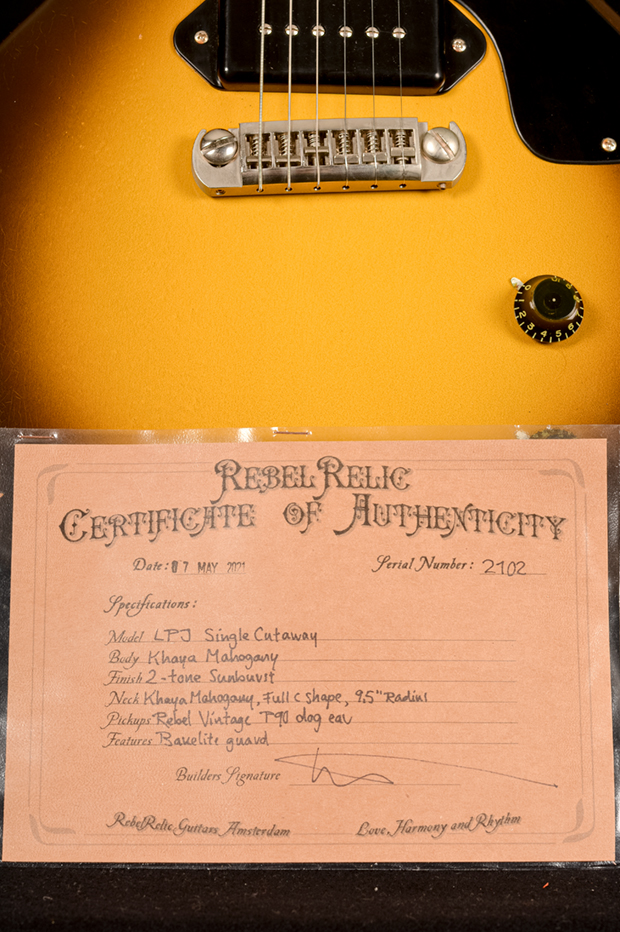 0 1 2 3 4 5 6
REBEL RELIC
CERTIFICATE OF AUTHENTICITY
Date: 07 MAY 2021 Serial Number: 2102
Specifications:
Model LPJ Single Cutaway
Body Khaya Mahogany
Finish 2-tone Sunburst
Neck Khaya Mahogany, Full C shape, 9,5" Radius
Pickups Rebel Vintage P90 dog ear
Features Bakelite guard
Builders Signature
RebelRelic Guitars, Amsterdam Love, Harmony and Rhythm